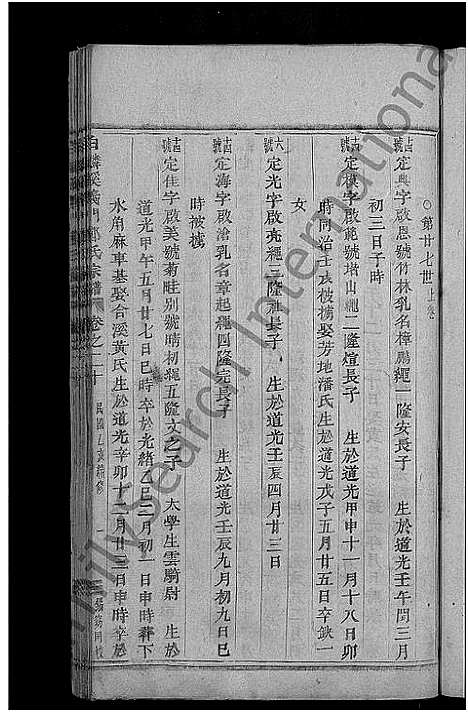 第廿七世上卷
吉號定典字啟恩號竹林乳名樟鵬繩一隆安長子 生於道光壬午閏三月
初三日子時
吉號定模字啟範號堦山繩二隆煊長子 生於道光甲申十一月十八日卯
時同治壬戌被擄娶芳地潘氏生於道光戊子五月廿五日卒缺一
女
六號定光字啟亮繩三隆祉長子 生於道光壬辰四月廿三日
吉號定海字啟滄乳名章起繩四隆完長子 生於道光壬辰九月初九日巳
時被擄
吉號定佳字啟美號菊畦別號晴初繩五隆文之子 太學生雲騎尉 生於
道光甲午五月廿七日巳時卒於光緒乙巳二月初一日申時葬下
水角麻車基娶合溪黃氏生於道光辛卯十二月廿三日申時卒於
白麟溪義門鄭氏宗譜 卷之二十 民國乙亥續修 一
FamilySearch International